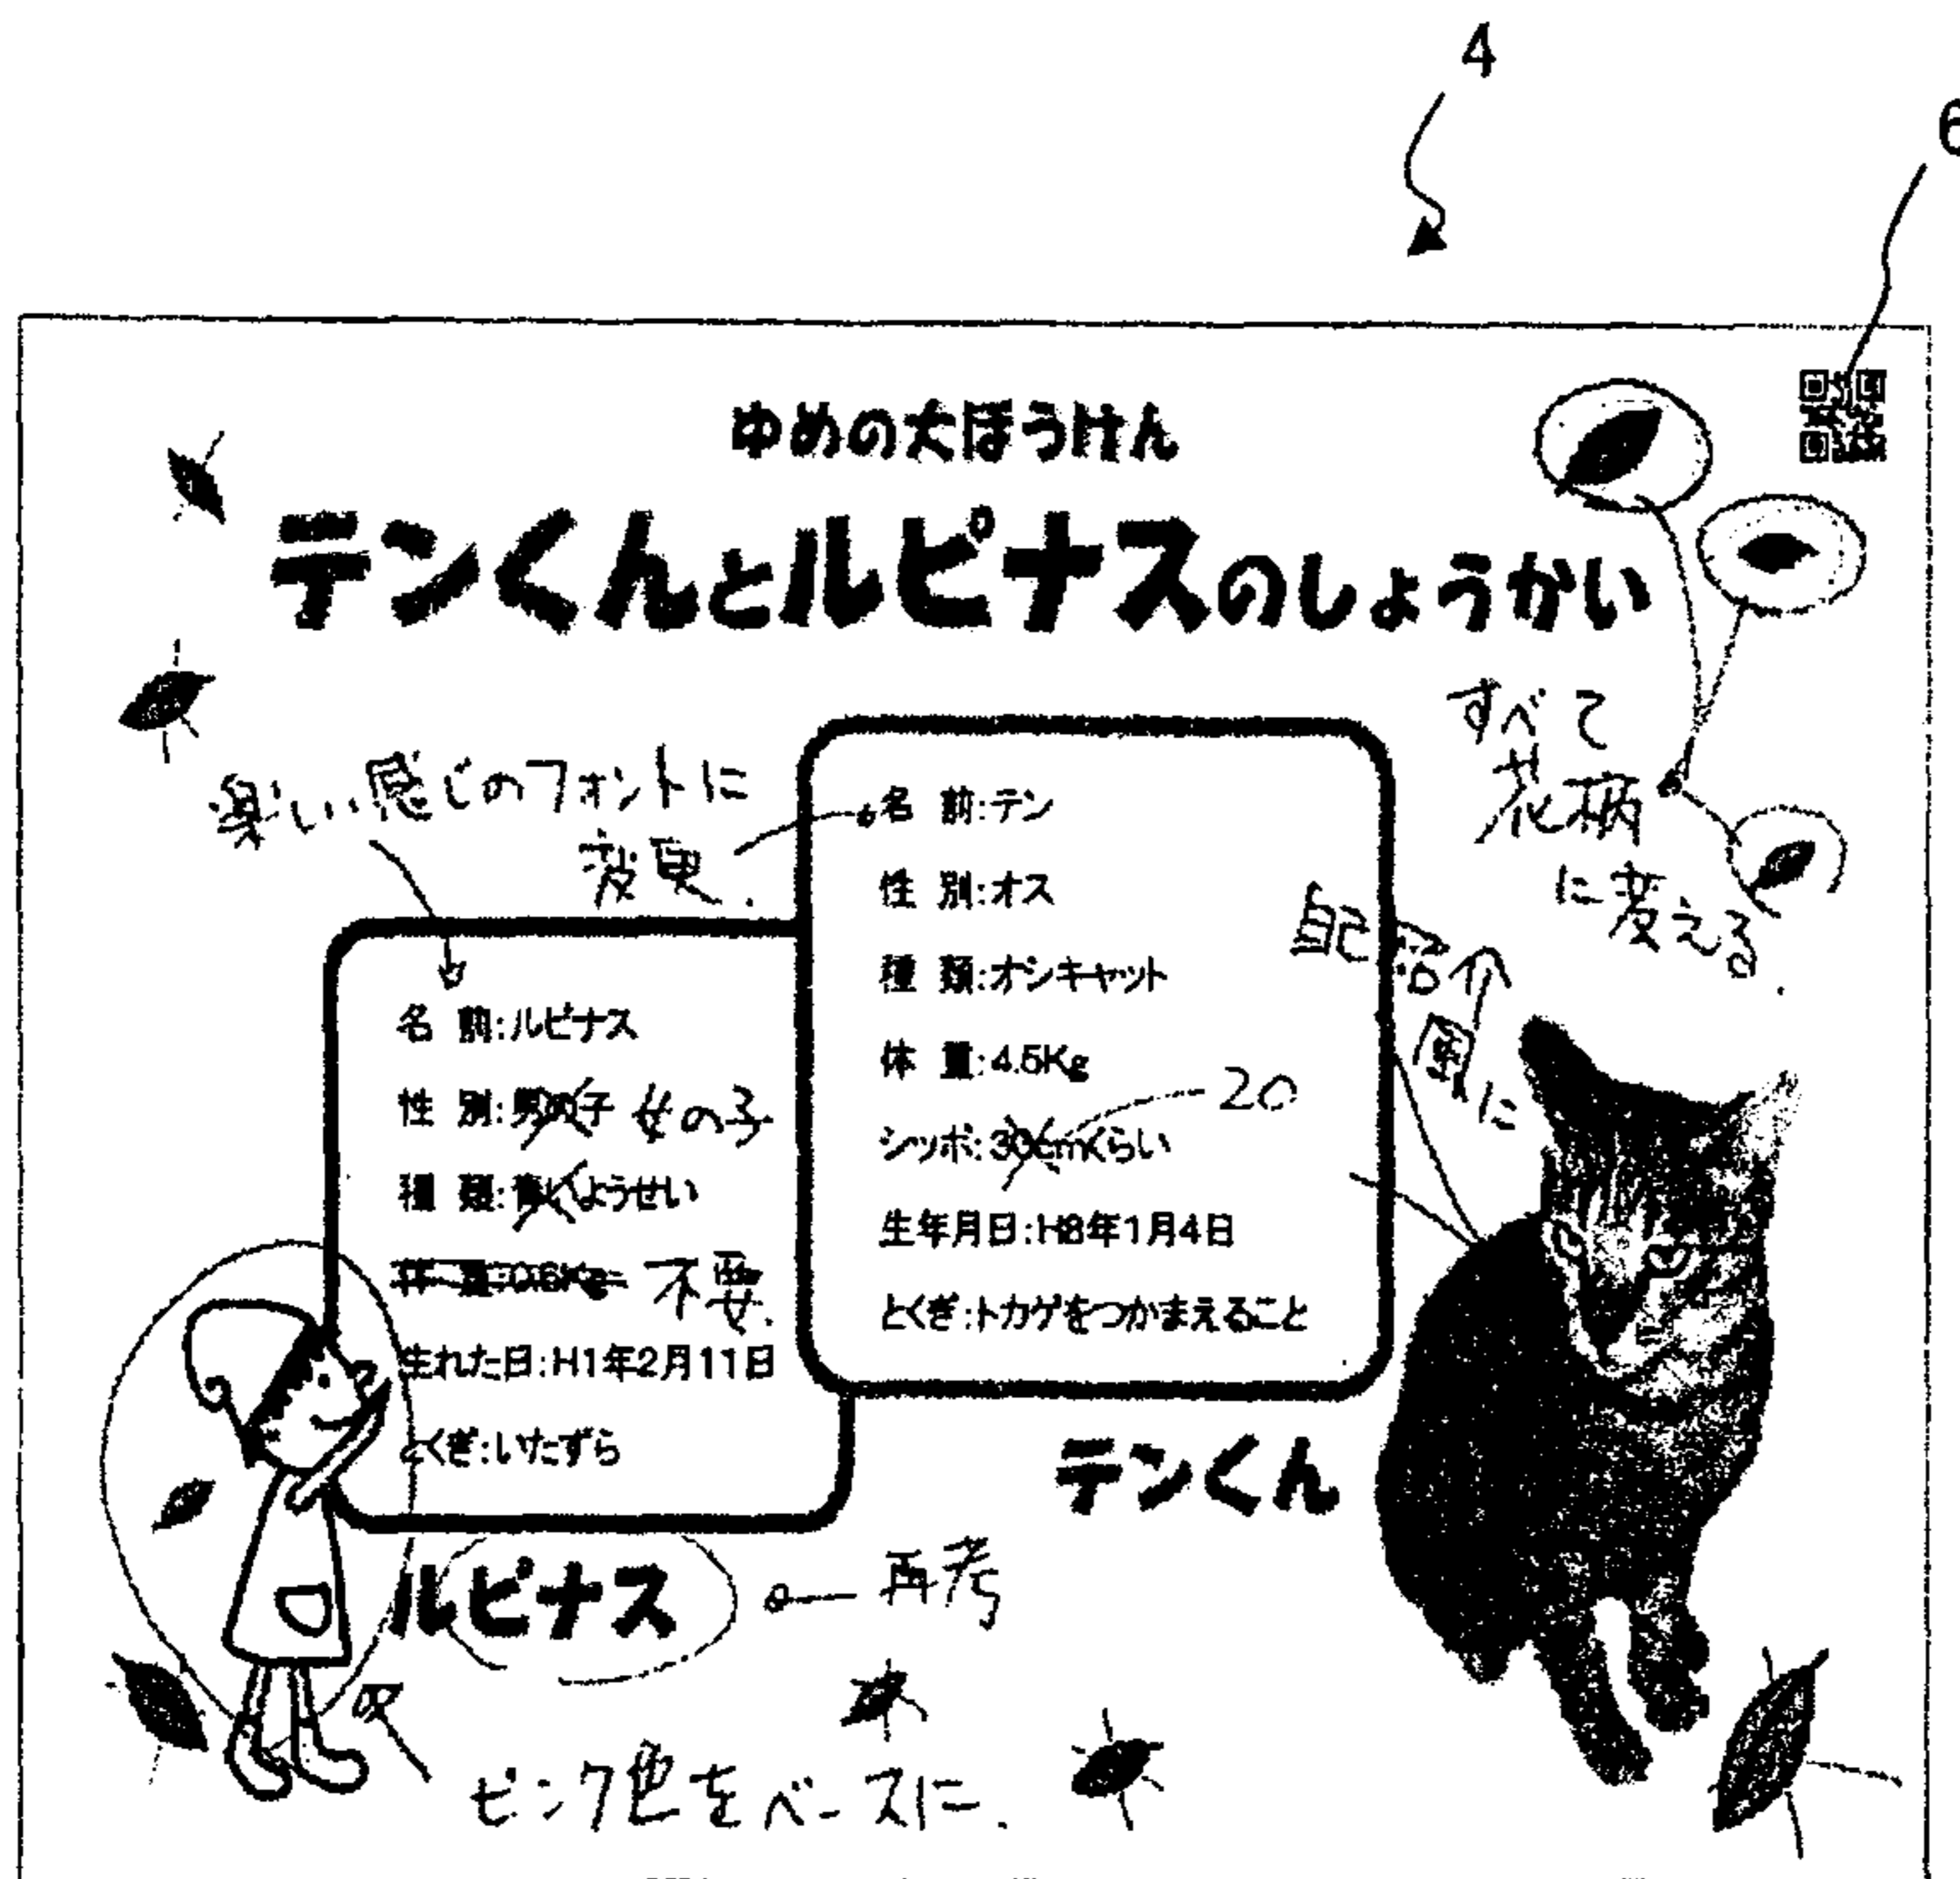 4
6
ゆめの大ぼうけん
テンくんとルピナスのしょうかい
すべて
花柄
に変える
楽しい感じのフォントに
変更.
名 前:テン
性 別:オス
種 類:オシキャット
体 重:4.5Kg
シッポ:30cmくらい
20
生年月日:H8年1月4日
とくぎ:トカゲをつかまえること
風に
名 前:ルピナス
性 別:男の子 女の子
種 類:ようせい
体 重:0.6Kg 不要.
生れた日:H1年2月11日
とくぎ:いたずら
テンくん
ルピナス
再考
ピンク色をベースに.